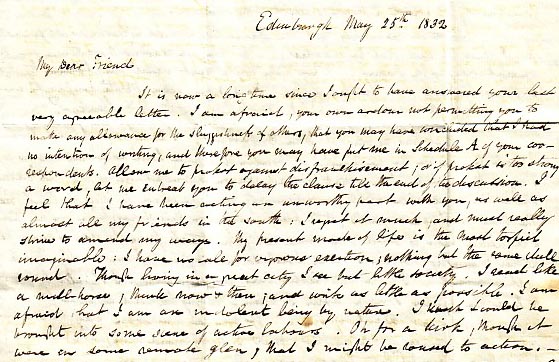 Edinburgh May 25th 1832
My Dear Friend
It is now a long time since I ought to have answered your last
very agreeable letter. I am afraid, your own ardour not permitting you to
make any allowance for the sluggishness of others, that you may have concluded that I had
no intention of writing, and therefore you may have put me in Schedule A of your cor-
respondents. Allow me to protest against disfranchisement; or if protest is too strong
a word, let me entreat you to delay the clause till the end of the discussion. I
feel that I have been acting an unworthy part with you, as well as
almost all my friends in the south: I regret it much, and must really
strive to amend my ways. My present mode of life is the most torpid
imaginable: I have no call for vigorous exertion; nothing but the same dull
round. Though living in a great city I see but little society. I read like
a mill-horse; think now & then; and write as little as possible. I am
afraid that I am an indolent being by nature. I wish I could be
brought into some scene of active labour. Oh for a kirk, though it
were in some remote glen, that I might be roused to action.